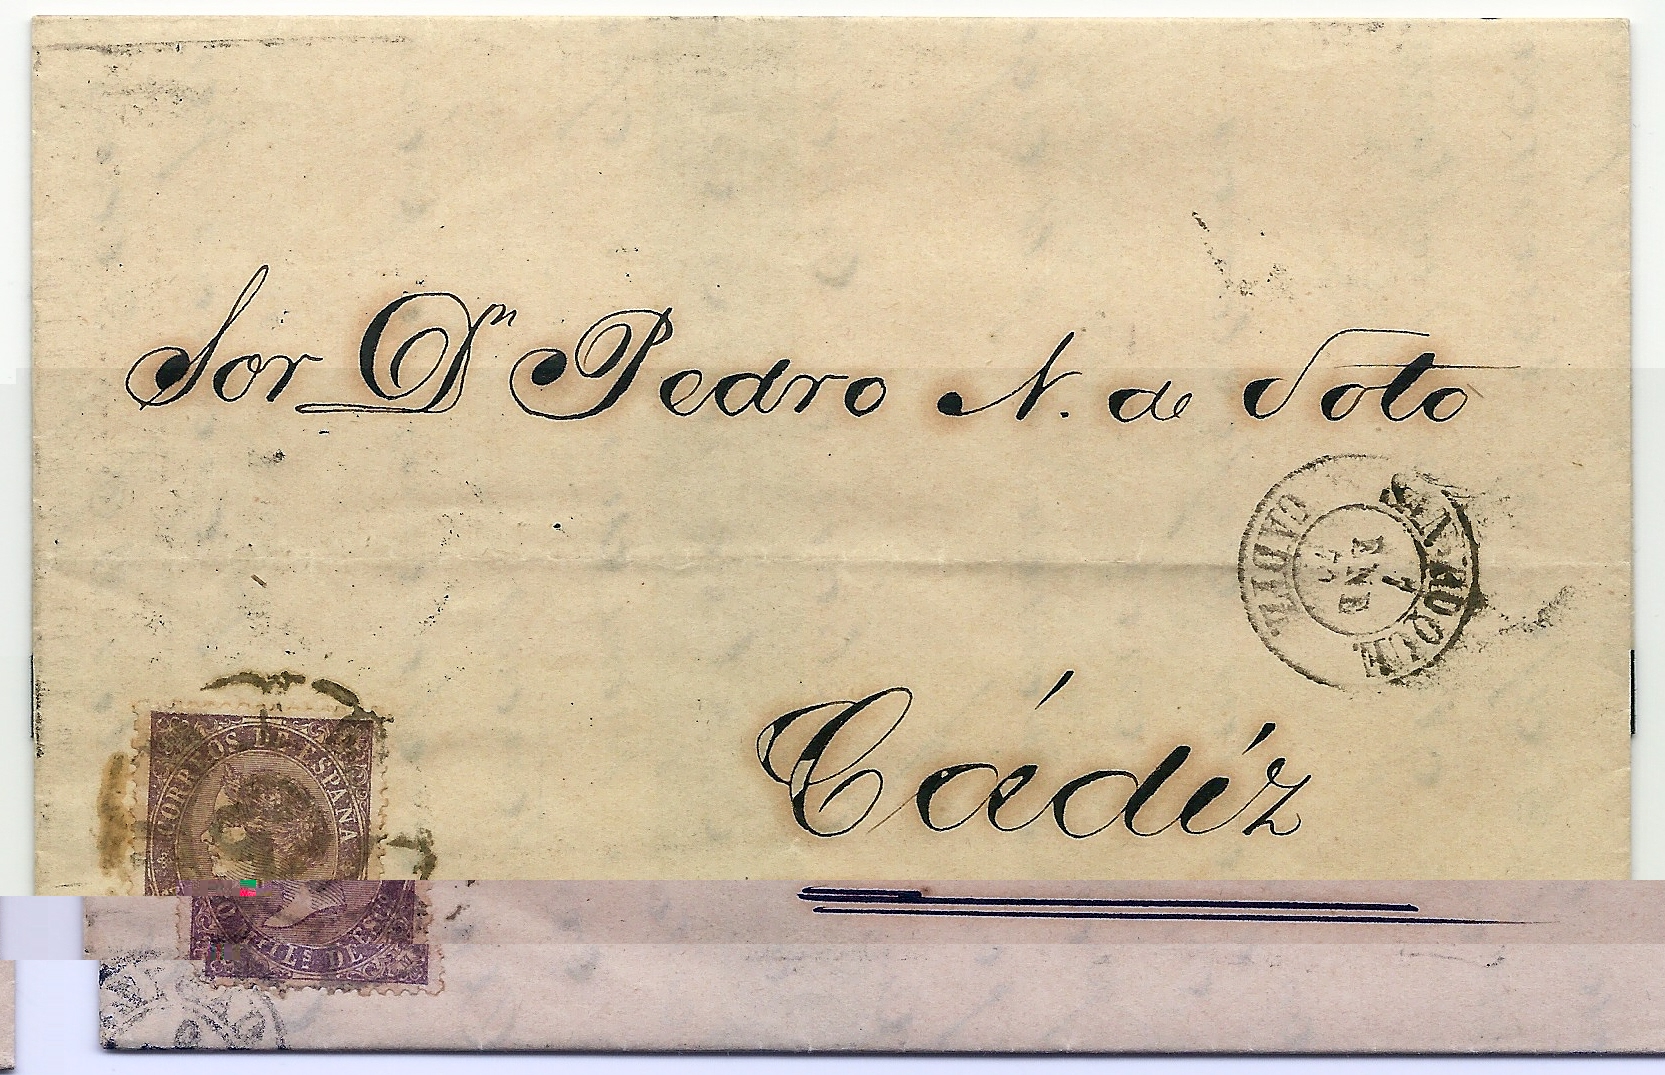 Sor Dn Pedro N. de Soto
CADIZ
7
ENE
Cádiz
CORREOS DE ESPAÑA